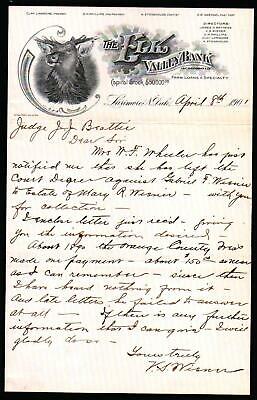 CLAY LARIMORE, PRESIDENT.
S. PHILLIPS, VICE PRESIDENT.
A. STEENERSON, CASHIER.
DIRECTORS:
THE ELK
VALLEY BANK
Capital Stock $50000.00
FARM LOANS A SPECIALTY
Larimore, N. Dak., April 8th 1901
Judge J. J. Beattie
Dear Sir
Mrs W. F. Wheeler has just
notified me that she has left the
Court Degree against Gabriel F. Wisner
to Estate of Mary R Wisner — with you
for collection
I enclose letter just rec'd — giving
you the information desired
About 1890 the Orange County
made one payment — about $150 as near
as I can remember — since then
I have heard nothing from it
And late letters he failed to answer
at all — If there is any further
information that I can give — I will
gladly do so —
Yours truly
Wisner